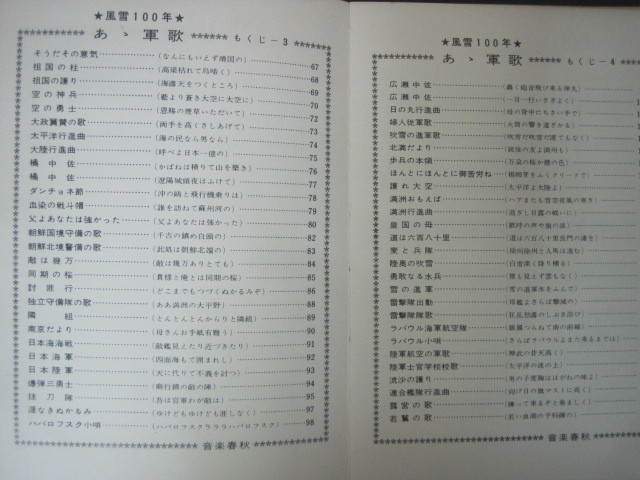 ★風雪100年★
あゝ軍歌 もくじー3
そうだその意気 (なんにもいとず靖国の) 67
祖国の柱 (高梁枯れて烏啼く) 68
祖国の護り 69
空の神兵 (藍より蒼き大空に大空に) 70
空の勇士 (恩賜の煙草いただいて) 72
大政翼賛の歌 (両手を高くさしあげて) 72
太平洋行進曲 (海の民なら男なら) 74
大陸行進曲 (呼べよ日本一億の) 75
橘中佐 (かばねは積りて山を築き) 76
橘中佐 (遼陽城頭夜はふけて) 77
ダンチョネ節 (沖の鴎と飛行機乗りは) 78
血染の戦斗帽 (誰を訪ねて蘇州河の) 81
父よあなたは強かった (父よあなたは強かった) 80
朝鮮国境守備の歌 (千古の鎮め白頭の) 82
朝鮮北境警備の歌 (此処は朝鮮北端の) 83
敵は幾万 (敵は幾万ありとても) 84
同期の桜 (貴様と俺とは同期の桜) 85
討匪行 (どこまでもつづくぬかるみぞ) 86
独立守備隊の歌 (ああ満洲の大平野) 88
隣組 (とんとんとんからりと隣組) 89
南京だより (母さんお手紙有難う) 90
日本海海戦 (敵艦見えたり近づきたり) 92
日本海軍 (四面海もて囲まれし) 92
日本陸軍 (天に代りて不義を討つ) 93
爆弾三勇士 (廟行鎮の敵の陣) 94
抜刀隊 (吾は官軍わが敵は) 95
涯なきぬかるみ (ゆけどもゆけども涯しなく) 97
ハバロフスク小唄 (ハバロフスクララララハバロフスク) 98
音楽春秋
★風雪100年★
あゝ軍歌 もくじー4
広瀬中佐 (轟く砲音飛び来る弾丸)
広瀬中佐 (一言一行いさぎよく)
日の丸行進曲 (母の背中にちさい手で)
婦人従軍歌 (火筒の響き遠ざかる)
吹雪の進軍歌
北満だより
歩兵の本領 (万朶の桜か襟の色)
ほんとにほんとに御苦労ね (楊柳芽をふくクリークで)
護れ大空
満洲おもえば
満洲行進曲 (過ぎし日露の戦いに)
皇国の母 (歓呼の声や旗の波)
道は六百八十里 (道は六百八十里長門の浦を)
麦と兵隊 (徐州徐州と人馬は進む)
陸奥の吹雪 (白雪深く降り積る)
勇敢なる水兵 (煙も見えず雲もなく)
雪の進軍 (雪の進軍氷をふんで)
雷撃隊出動 (母艦よさらば撃滅の)
雷撃隊隊歌
ラバウル海軍航空隊 (銀翼つらねて南の前線)
ラバウル小唄 (さらばラバウルよまた来るまでは)
陸軍航空の軍歌
陸軍士官学校校歌 (太平洋の波の上)
流沙の護り (男の子度胸ははがねの味よ)
連合艦隊行進曲
露営の歌 (勝って来るぞと勇ましく)
若鷲の歌 (若い血潮の予科練の)
音楽春秋